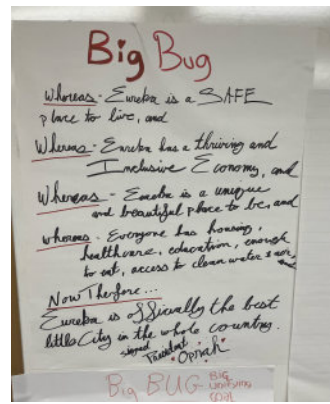 Big Bug
Whereas - Eureka is a SAFE
place to live, and
Whereas - Eureka has a thriving and
Inclusive Economy, and
Whereas - Eureka is a unique
and beautiful place to be, and
whereas - Everyone has housing,
healthcare, education, enough
to eat, access to clean water & air,
Now Therfore...
Eureka is officially the best
little City in the whole country.
signed
President
Oprah
Big BUG BIG
UNIFYING
GOAL